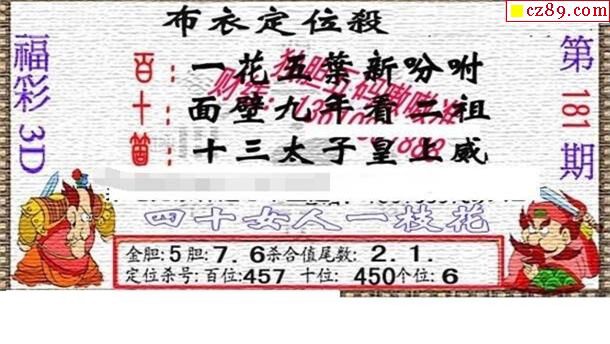 cz89.com
布衣定位殺
福彩3D
第181期
百：一花五葉新吩咐
十：面壁九年看二祖
十三太子皇上威
四十女人一枝花
金胆:5胆:7.6杀合值尾数:2.1.
定位杀号:百位:457 十位:450个位:6